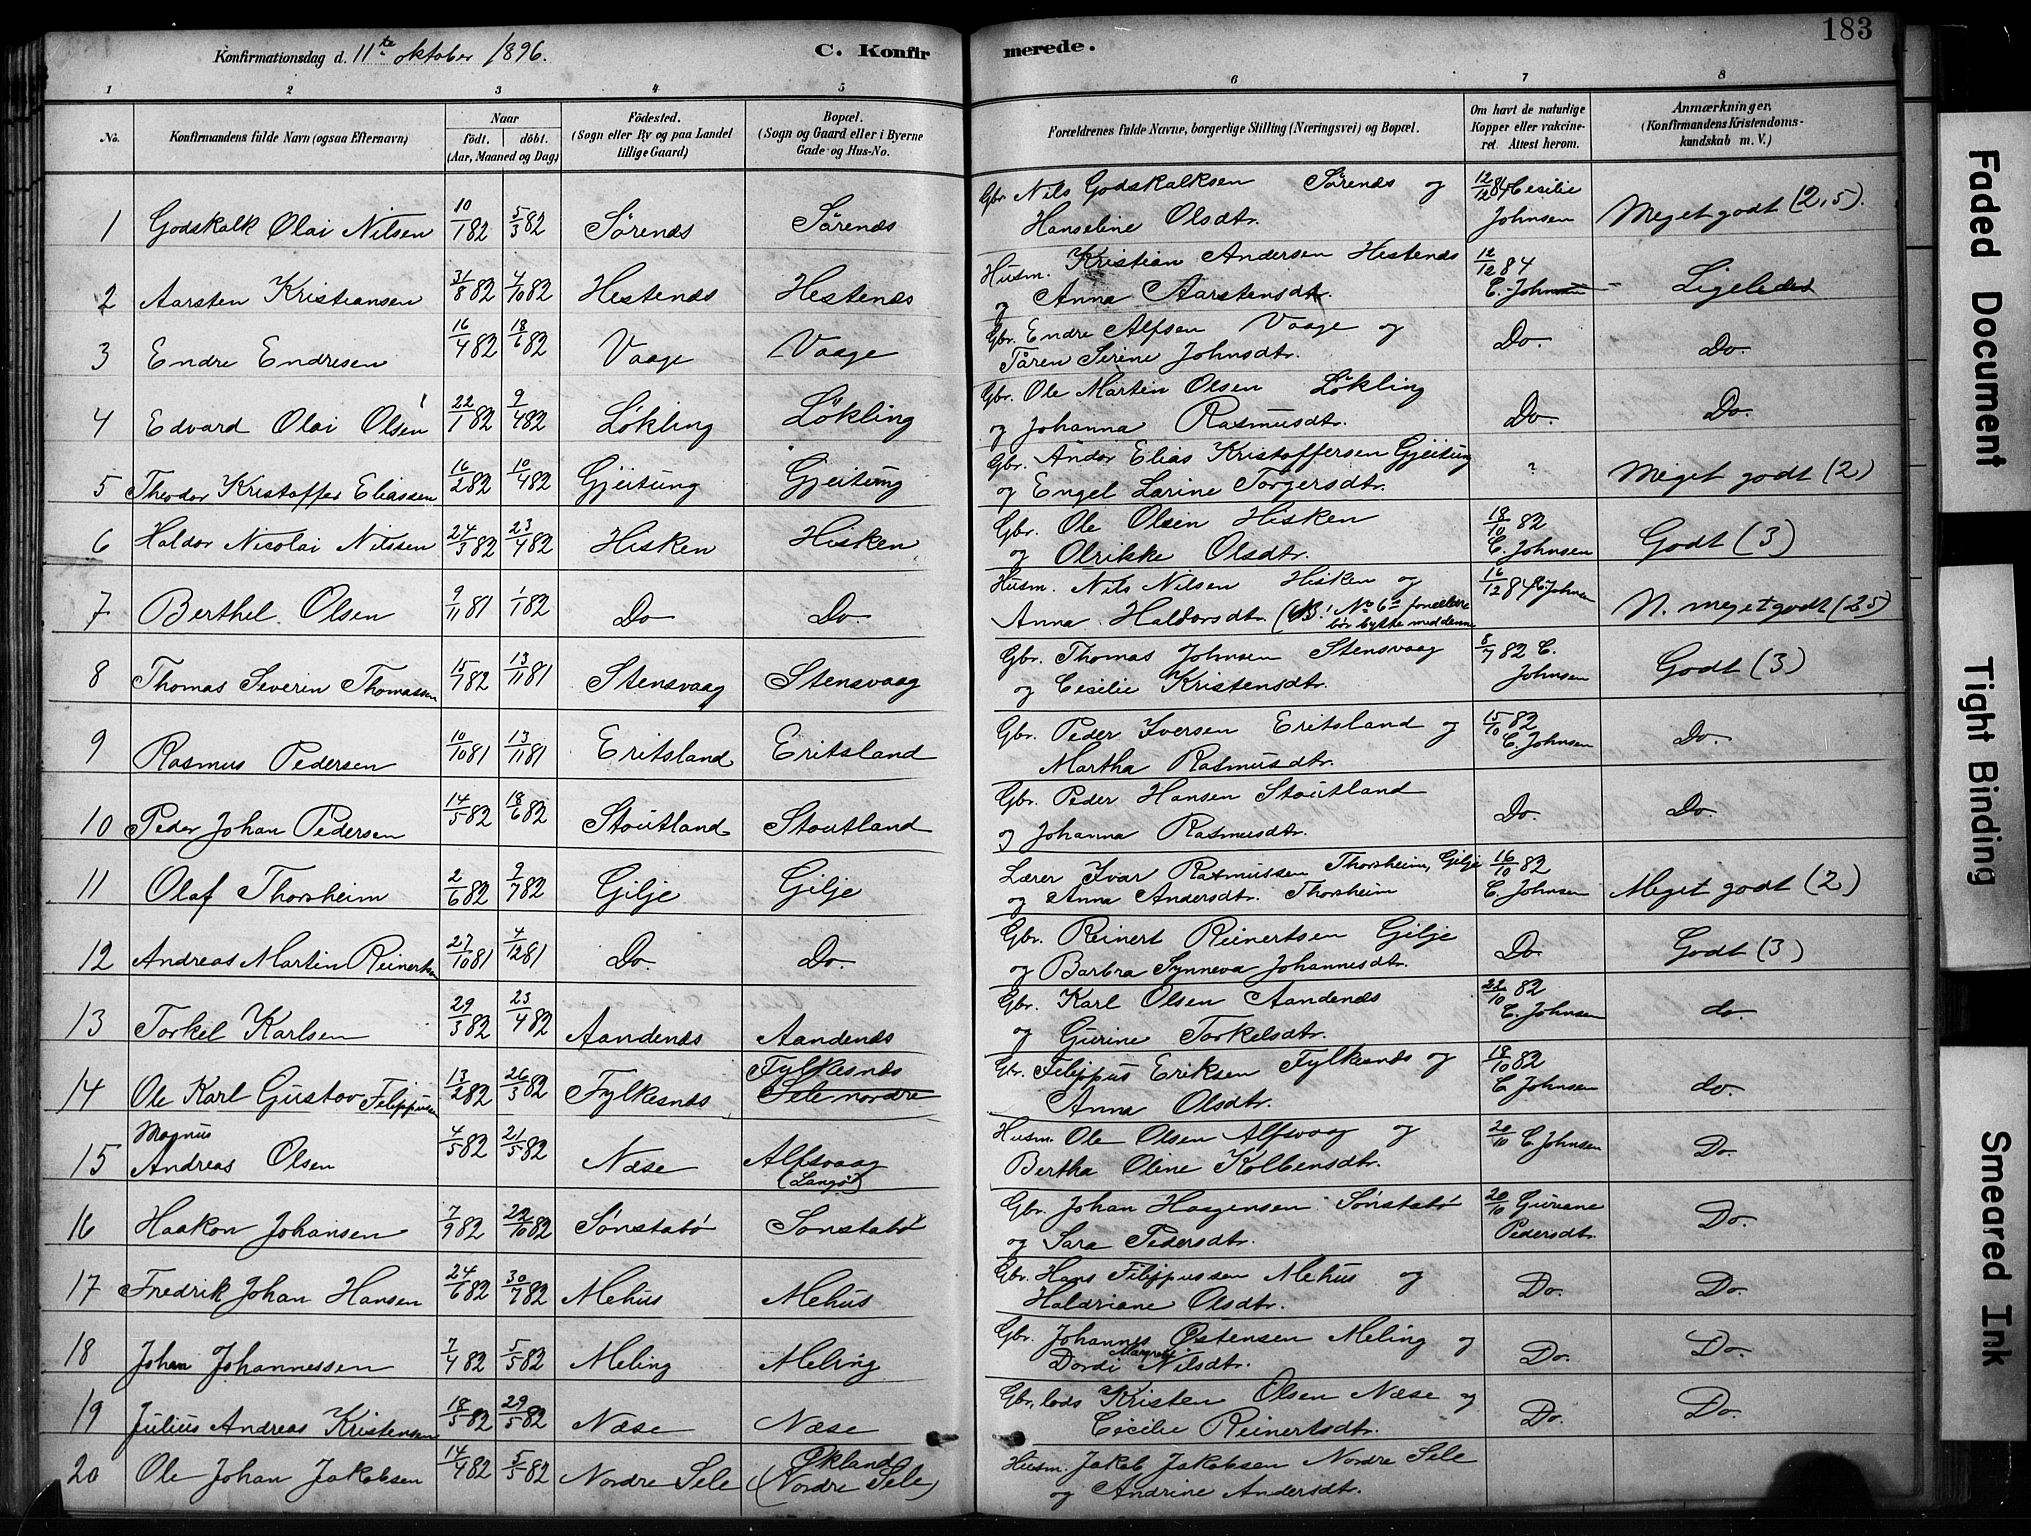 183
Konfirmationsdag d. 11te oktober 1896.
C. Konfirmerede.
1 2 3 4 5 6 7 8
No.
Konfirmandens fulde Navn (ogsaa Efternavn)
Naar
födt. döbt.
(Aar, Maaned og Dag)
Födested.
(Sogn eller By og paa Landet
tillige Gaard)
Bopæl.
(Sogn og Gaard eller i Byerne
Gade og Hus-No.
Forældrenes fulde Navne, borgerlige Stilling (Næringsvei) og Bopæl.
Om havt de naturlige
Kopper eller vakcine-
ret. Attest herom.
Anmærkninger.
(Konfirmandens Kristendoms-
kundskab m. V.)
1 Godskalk Olai Nilsen 10/1 82 5/3 82 Sørenæs Sørenæs Gbr. Nils Godskalksen Sørenæs og
Hanseline Olsdtr. 12/12 84 Cecilie
Johnsen Meget godt (2,5).
2 Aarsten Kristiansen 31/8 82 4/10 82 Hestenæs Hestenæs Husm. Kristian Andersen Hestenæs
og Anna Aarstensdtr. 12/12 84
C. Johnsen - Ligeledes
3 Endre Endresen 16/4 82 18/6 82 Vaage Vaage Gbr. Endre Alfsen Vaage og
Tåren Serine Johnsdtr. Do. Do.
4 Edvard Olai Olsen 22/1 82 9/4 82 Løkling Løkling Gbr. Ole Martin Olsen Løkling
og Johanna Rasmusdtr. Do. Do.
5 Theodor Kristoffer Eliassen 16/2 82 10/4 82 Gjeitung Gjeitung Gbr. Andor Elias Kristoffersen Gjeitung
og Engel Larine Torgersdtr. ? Meget godt (2)
6 Haldor Nicolai Nilssen 24/3 82 23/4 82 Hisken Hisken Gbr. Ole Olsen Hisken
og Olrikke Olsdtr. 18/10 82
C. Johnsen Godt (3)
7 Berthel Olsen 9/11 81 1/1 82 Do Do. Husm. Nils Nilsen Hisken og
Anna Haldorsdtr. (NB! No 6s forældre
bør bytte med denne 16/12 84 C. Johnsen N. meget godt (2,5)
8 Thomas Severin Thomassen 15/7 82 13/11 81 Stensvaag Stensvaag Gbr. Thomas Johnsen Stensvaag
og Cecilie Kristensdtr. 8/7 82 C.
Johnsen Godt (3)
9 Rasmus Pedersen 10/10 81 13/11 81 Eritsland Eritsland Gbr. Peder Iversen Eritsland og
Martha Rasmusdtr. 15/10 82
C. Johnsen Do.
10 Peder Johan Pedersen 14/5 82 18/6 82 Stoutland Stoutland Gbr. Peder Hansen Stoutland
og Johanna Rasmusdtr. Do. Do.
11 Olaf Thorsheim 2/6 82 9/7 82 Gilje Gilje Lærer Ivar Rasmussen Thorsheim, Gilje
og Anna Andersdtr. Thorsheim 16/10 82
C. Johnsen Meget godt (2)
12 Andreas Martin Reinertsen 27/10 81 4/12 81 Do. Do. Gbr. Reinert Reinertsen Gilje
og Barbra Synneva Johannesdtr. Do. Godt (3)
13 Torkel Karlsen 29/3 82 23/4 82 Aandenæs Aandenæs Gbr. Karl Olsen Aandenæs
og Gurine Torkelsdtr. 22/10 82
C. Johnsen do.
14 Ole Karl Gustav Filippusen 13/2 82 26/3 82 Fylkesnæs Fylkesnæs
Sele nordre Gbr. Filippus Eriksen Fylkesnæs og
Anna Olsdtr. 18/10 82
C. Johnsen do.
15 Magnus
Andreas Olsen 4/5 82 21/5 82 Næse Alfsvaag
(Langø) Husm. Ole Olsen Alfsvaag og
Bertha Oline Kolbensdtr. 20/10 C. Johnsen Do.
16 Haakon Johansen 7/9 82 22/10 82 Sønstabø Sønstabø Gbr. Johan Haagensen Sønstabø
og Sara Pedersdtr. 20/10 Guriane
Pedersdtr. Do.
17 Fredrik Johan Hansen 24/6 82 30/7 82 Mehus Mehus Gbr. Hans Filippussen Mehus og
Haldriane Olsdtr. Do. Do.
18 Johan Johannessen 7/4 82 5/5 82 Meling Meling Gbr. Johannes Østensen Meling og
Dordi Margrete Nilsdtr. Do. Do.
19 Julius Andreas Kristensen 18/5 82 29/5 82 Næse Næse Gbr., lods Kristen Olsen Næse og
Cecilie Reinertsdtr. Do. Do.
20 Ole Johan Jakobsen 14/4 82 5/5 82 Nordre Sele Økland
(Nordre Sele) Husm. Jakob Jakobsen Nordre Sele
og Andrine Andersdtr.
Faded Document
Tight Binding
Smeared Ink